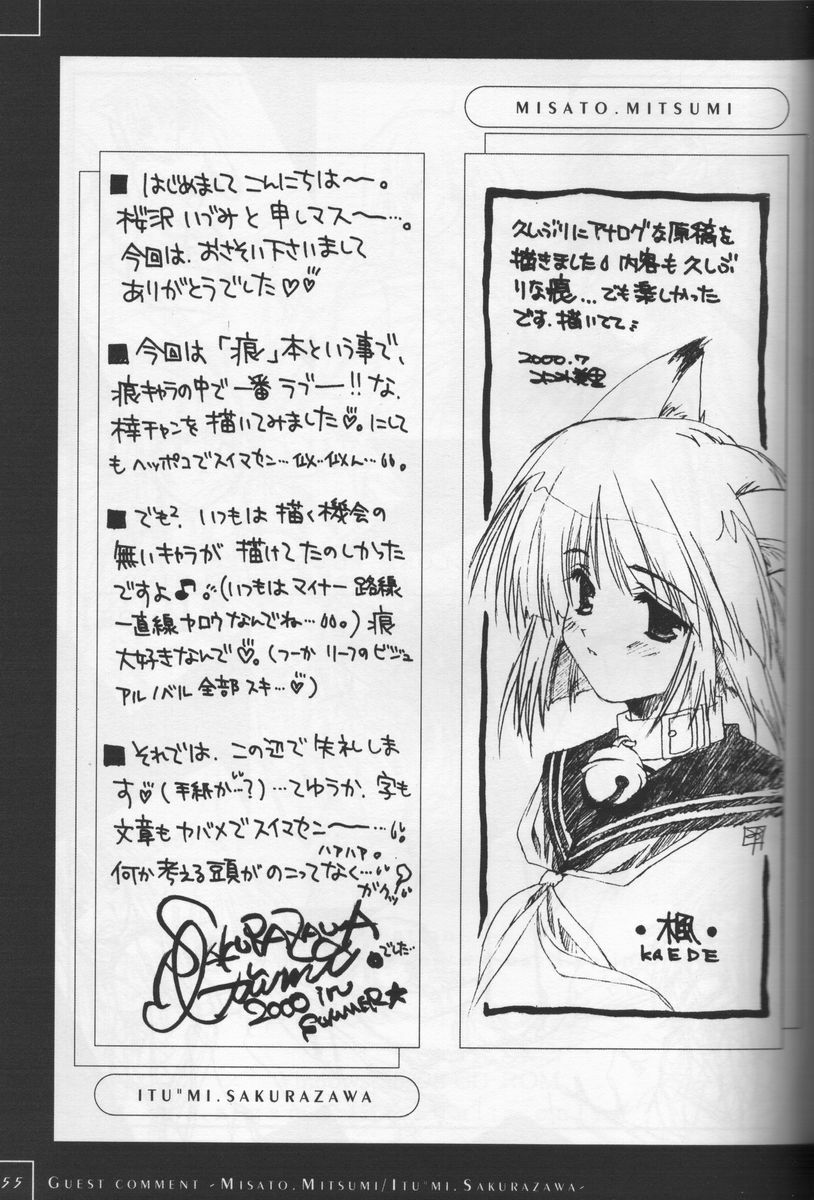 MISATO.MITSUMI
久しぶりにアナログな原稿を
描きました 内容も久しぶ
りな痕...でも楽しかった
です.描いてて♪
2000.7
・楓・
KAEDE
■ はじめまして こんにちは〜。
桜沢 いづみと 申しマス〜…。
今回は、おさそい下さいまして
ありがとうでした♡♡
■ 今回は「痕」本という事で、
痕キャラの中で一番ラブー!!な、
梓チャンを描いてみました♡。にして
も ヘッポコでスイマセン…似..似ん…。
■ でも²、いつもは 描く機会の
無いキャラが 描けてたのしかった
ですよ♪(いつもは マイナー 路線
一直線ヤロウなんでね…。)痕
大好きなんで♡。(つーか リーフの ビジュ
アル ノベル 全部 スキ…♡)
■ それでは、この辺で 失礼しま
す♡(手紙か…?)…てゆうか、字も
文章も ヤバメで スイマセン〜…。
ハァハァ。
何か 考える 頭が のこって なく…
ガクッ
SAKURAZAWA
Itsumi でした…
2000 in
SUMMER☆
ITU"MI.SAKURAZAWA
55 GUEST COMMENT -MISATO.MITSUMI/ITU"MI.SAKURAZAWA-